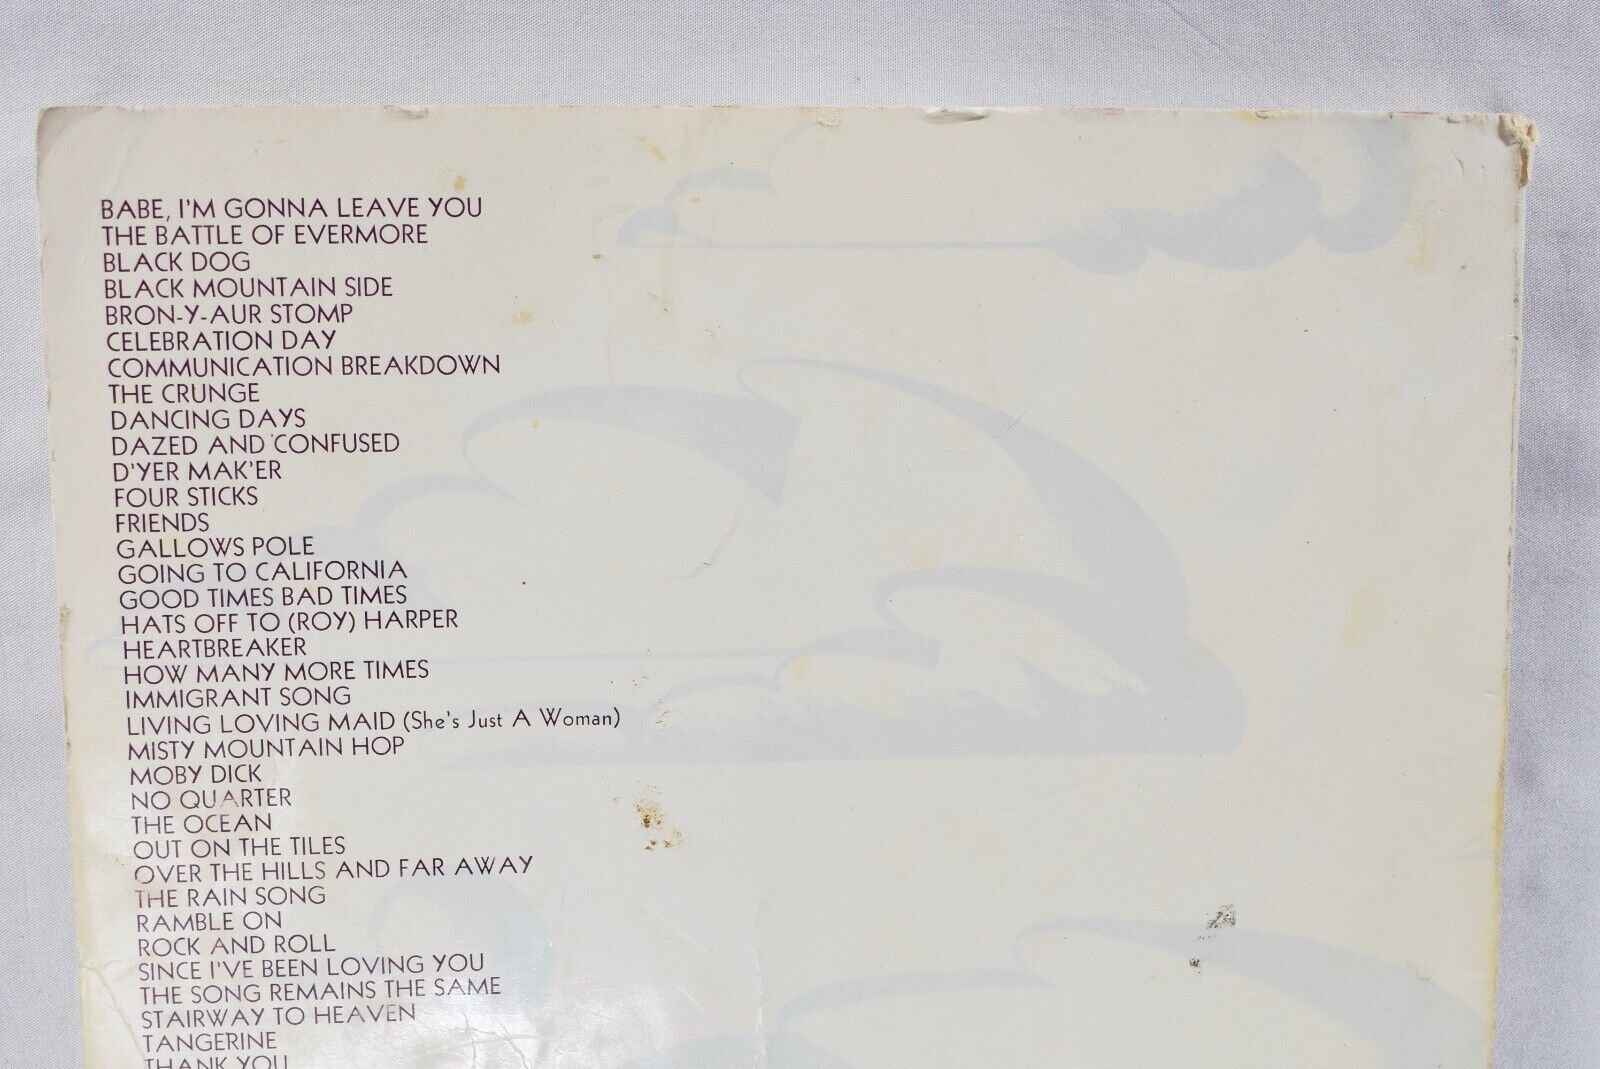 BABE, I'M GONNA LEAVE YOU
THE BATTLE OF EVERMORE
BLACK DOG
BLACK MOUNTAIN SIDE
BRON-Y-AUR STOMP
CELEBRATION DAY
COMMUNICATION BREAKDOWN
THE CRUNGE
DANCING DAYS
DAZED AND CONFUSED
D'YER MAK'ER
FOUR STICKS
FRIENDS
GALLOWS POLE
GOING TO CALIFORNIA
GOOD TIMES BAD TIMES
HATS OFF TO (ROY) HARPER
HEARTBREAKER
HOW MANY MORE TIMES
IMMIGRANT SONG
LIVING LOVING MAID (She's Just A Woman)
MISTY MOUNTAIN HOP
MOBY DICK
NO QUARTER
THE OCEAN
OUT ON THE TILES
OVER THE HILLS AND FAR AWAY
THE RAIN SONG
RAMBLE ON
ROCK AND ROLL
SINCE I'VE BEEN LOVING YOU
THE SONG REMAINS THE SAME
STAIRWAY TO HEAVEN
TANGERINE
THANK YOU